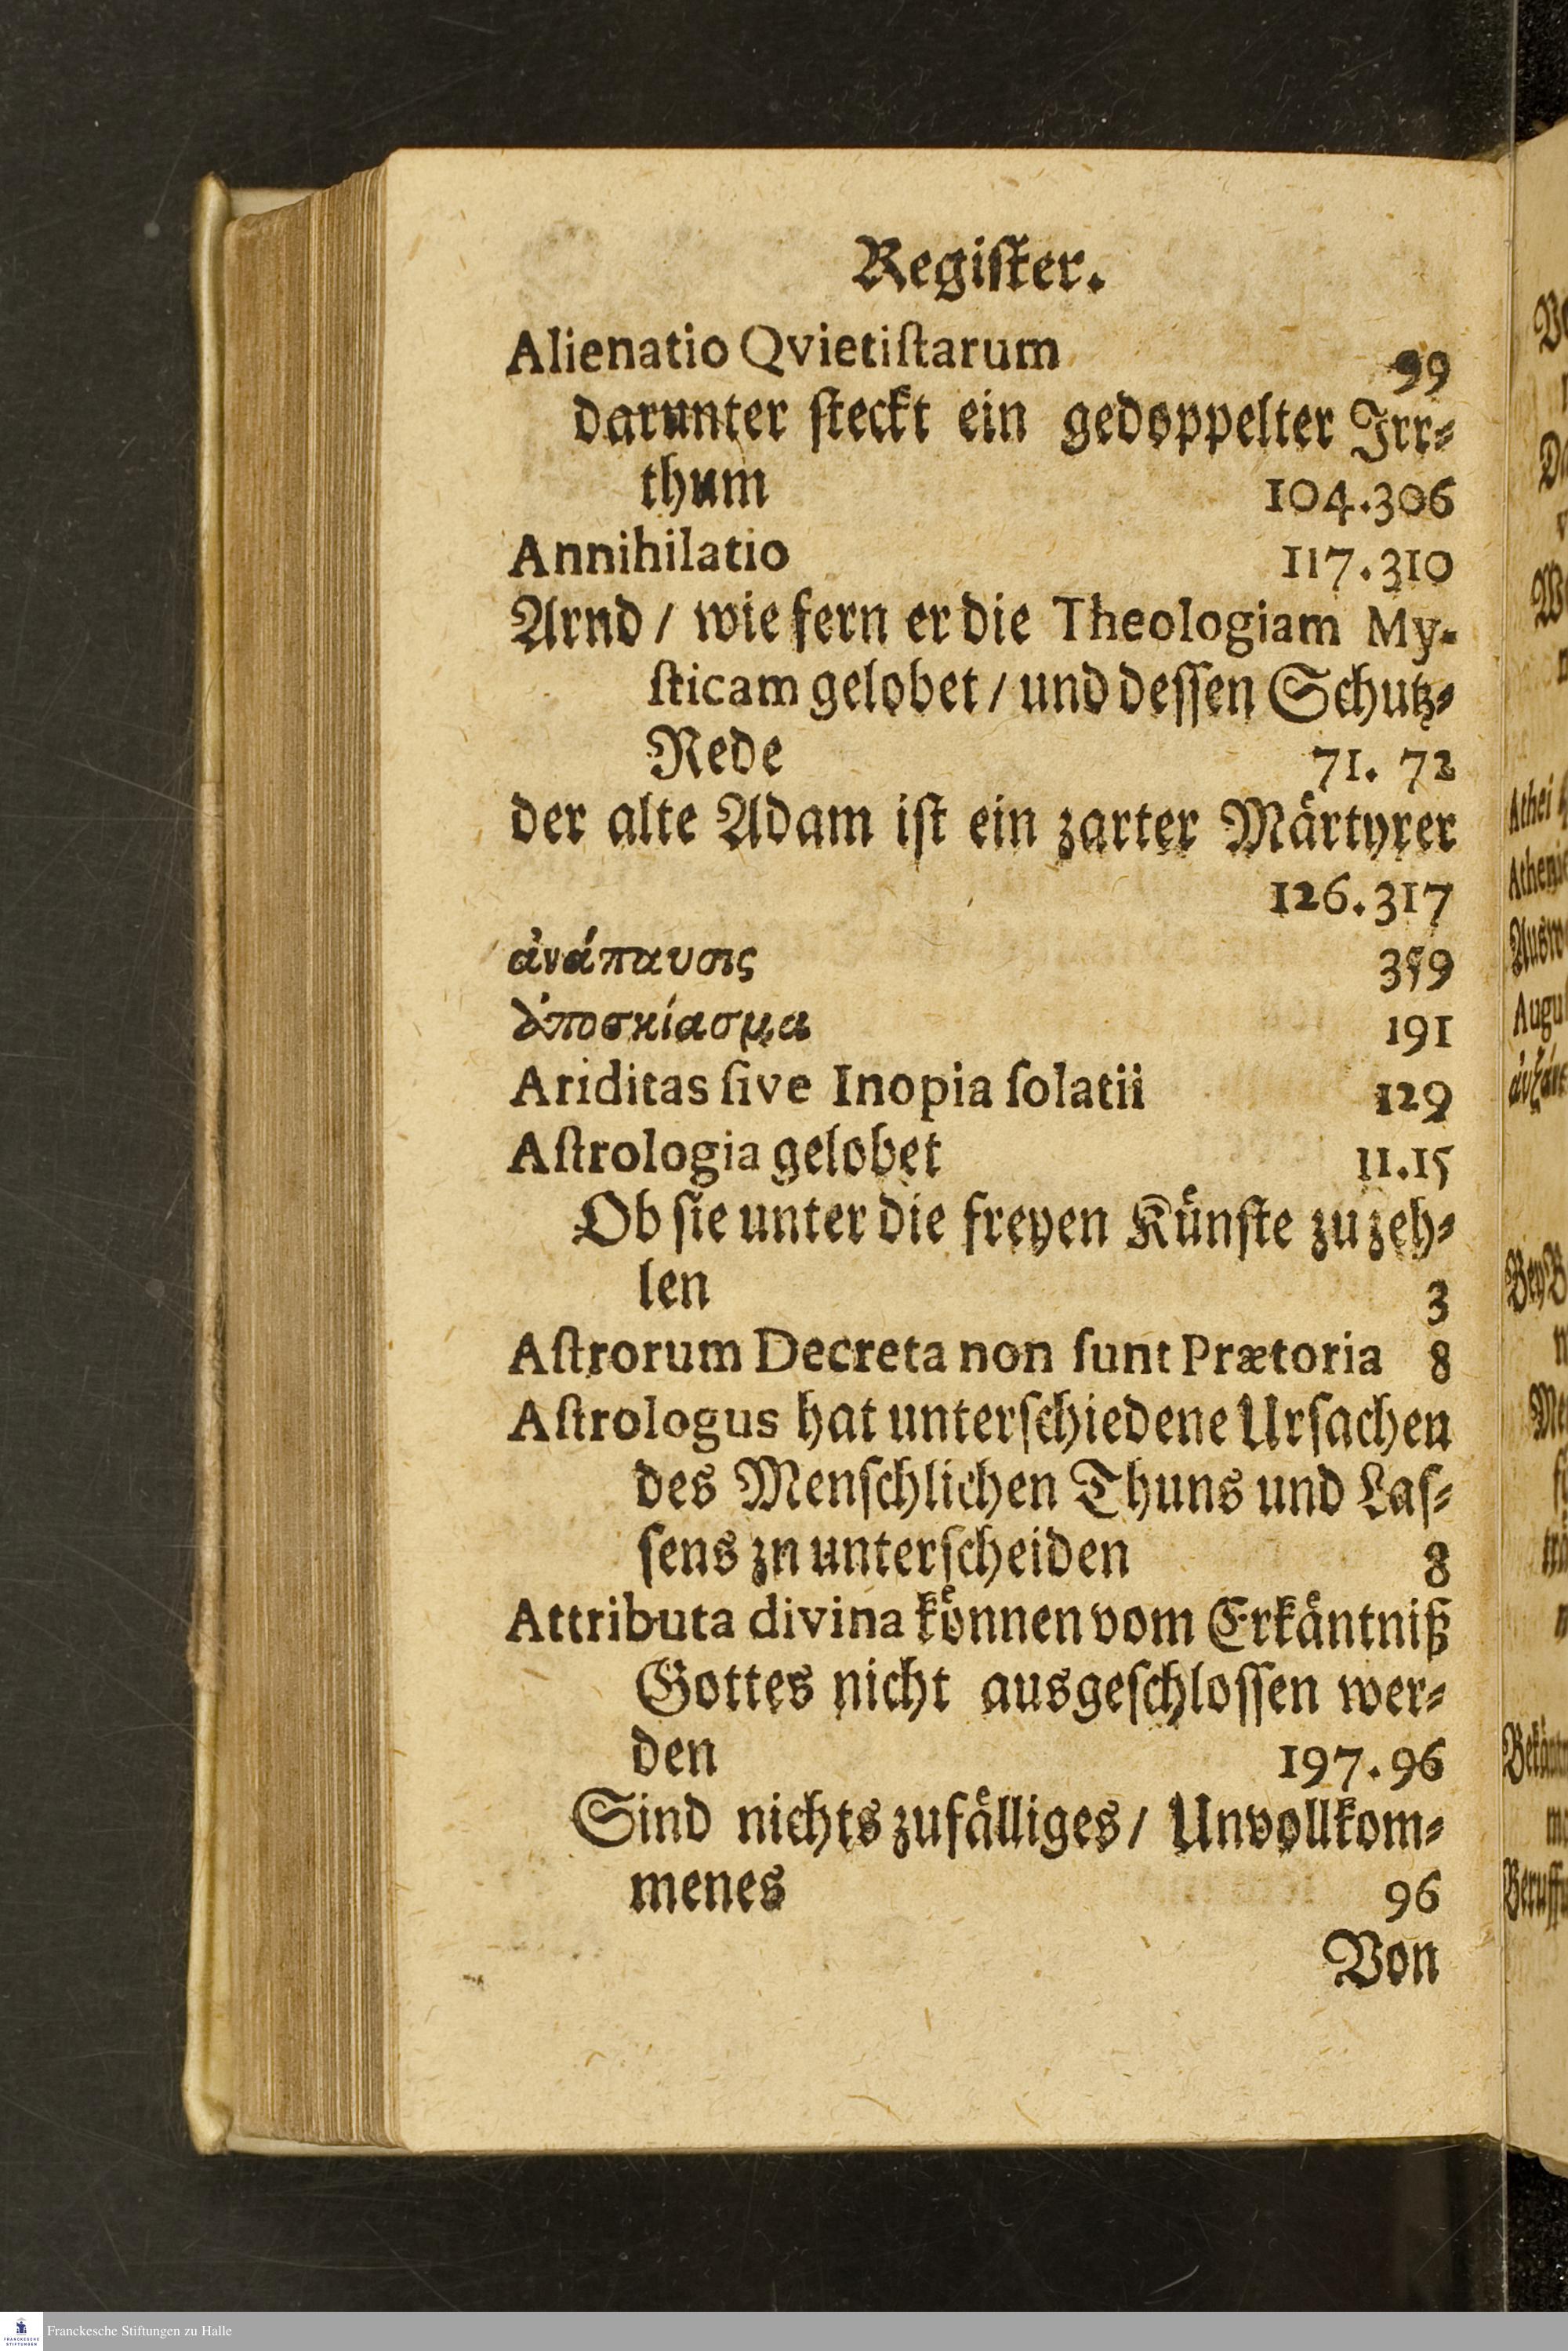 Regiſter.
Alienatio Qvietiſtarum 99
darunter ſteckt ein gedoppelter Irr-
thum 104.306
Annihilatio 117.310
Arnd / wie fern er die Theologiam My-
ſticam gelobet / und deſſen Schutz-
Rede 71. 72
der alte Adam iſt ein zarter Maͤrtyrer
126.317
ἀνάπαυσις 359
ἀποσκίασμα 191
Ariditas ſive Inopia ſolatii 129
Aſtrologia gelobet 11.15
Ob ſie unter die freyen Kuͤnſte zu zeh-
len 3
Aſtrorum Decreta non ſunt Prætoria 8
Aſtrologus hat unterſchiedene Urſachen
des Menſchlichen Thuns und Laſ-
ſens zn unterſcheiden 8
Attributa divina koͤnnen vom Erkaͤntniß
Gottes nicht ausgeſchloſſen wer-
den 197.96
Sind nichts zufaͤlliges / Unvollkom-
menes 96
Von
Athei
Franckesche Stiftungen zu Halle